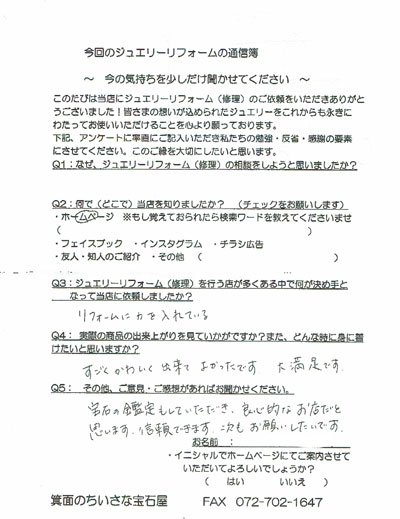 今回のジュエリーリフォームの通信簿
～ 今の気持ちを少しだけ聞かせてください ～
このたびは当店にジュエリーリフォーム（修理）のご依頼をいただきありがと
うございました！皆さまの想いが込められたジュエリーをこれからも永きに
わたってお使いいただけることを心より願っております。
下記、アンケートに率直にご記入いただき私たちの勉強・反省・感謝の要素
にさせてください。このご縁を大切にしたいと思います。
Q1：なぜ、ジュエリーリフォーム（修理）の相談をしようと思いましたか？
Q2：何で（どこで）当店を知りましたか？ （チェックをお願いします）
・ホームページ ※もし覚えておられたら検索ワードを教えてくださいませ
（ ）
・フェイスブック ・インスタグラム ・チラシ広告
・友人・知人のご紹介 ・その他 （ ）
Q3：ジュエリーリフォーム（修理）を行う店が多くある中で何が決め手と
なって当店に依頼しましたか？
リフォームに力を入れている
Q4： 実際の商品の出来上がりを見ていかがですか？また、どんな時に身に着
けたいと思いますか？
すごくかわいく出来てよかったです 大満足です。
Q5： その他、ご意見・ご感想があればお聞かせください。
宝石の鑑定もしていただき、良心的なお店だと
思います。信頼できます。次もお願いしたいです。
お名前 ：
・イニシャルでホームページにてご案内させて
いただいてよろしいでしょうか？
（ はい いいえ ）
箕面のちいさな宝石屋 FAX 072-702-1647